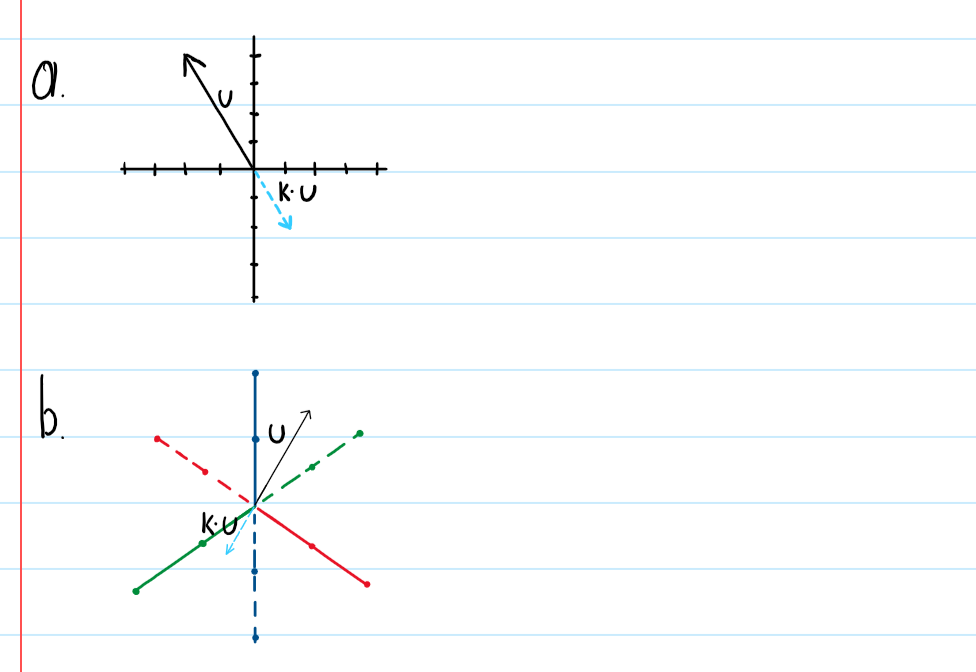 a.
U
K·U
b.
U
K·U